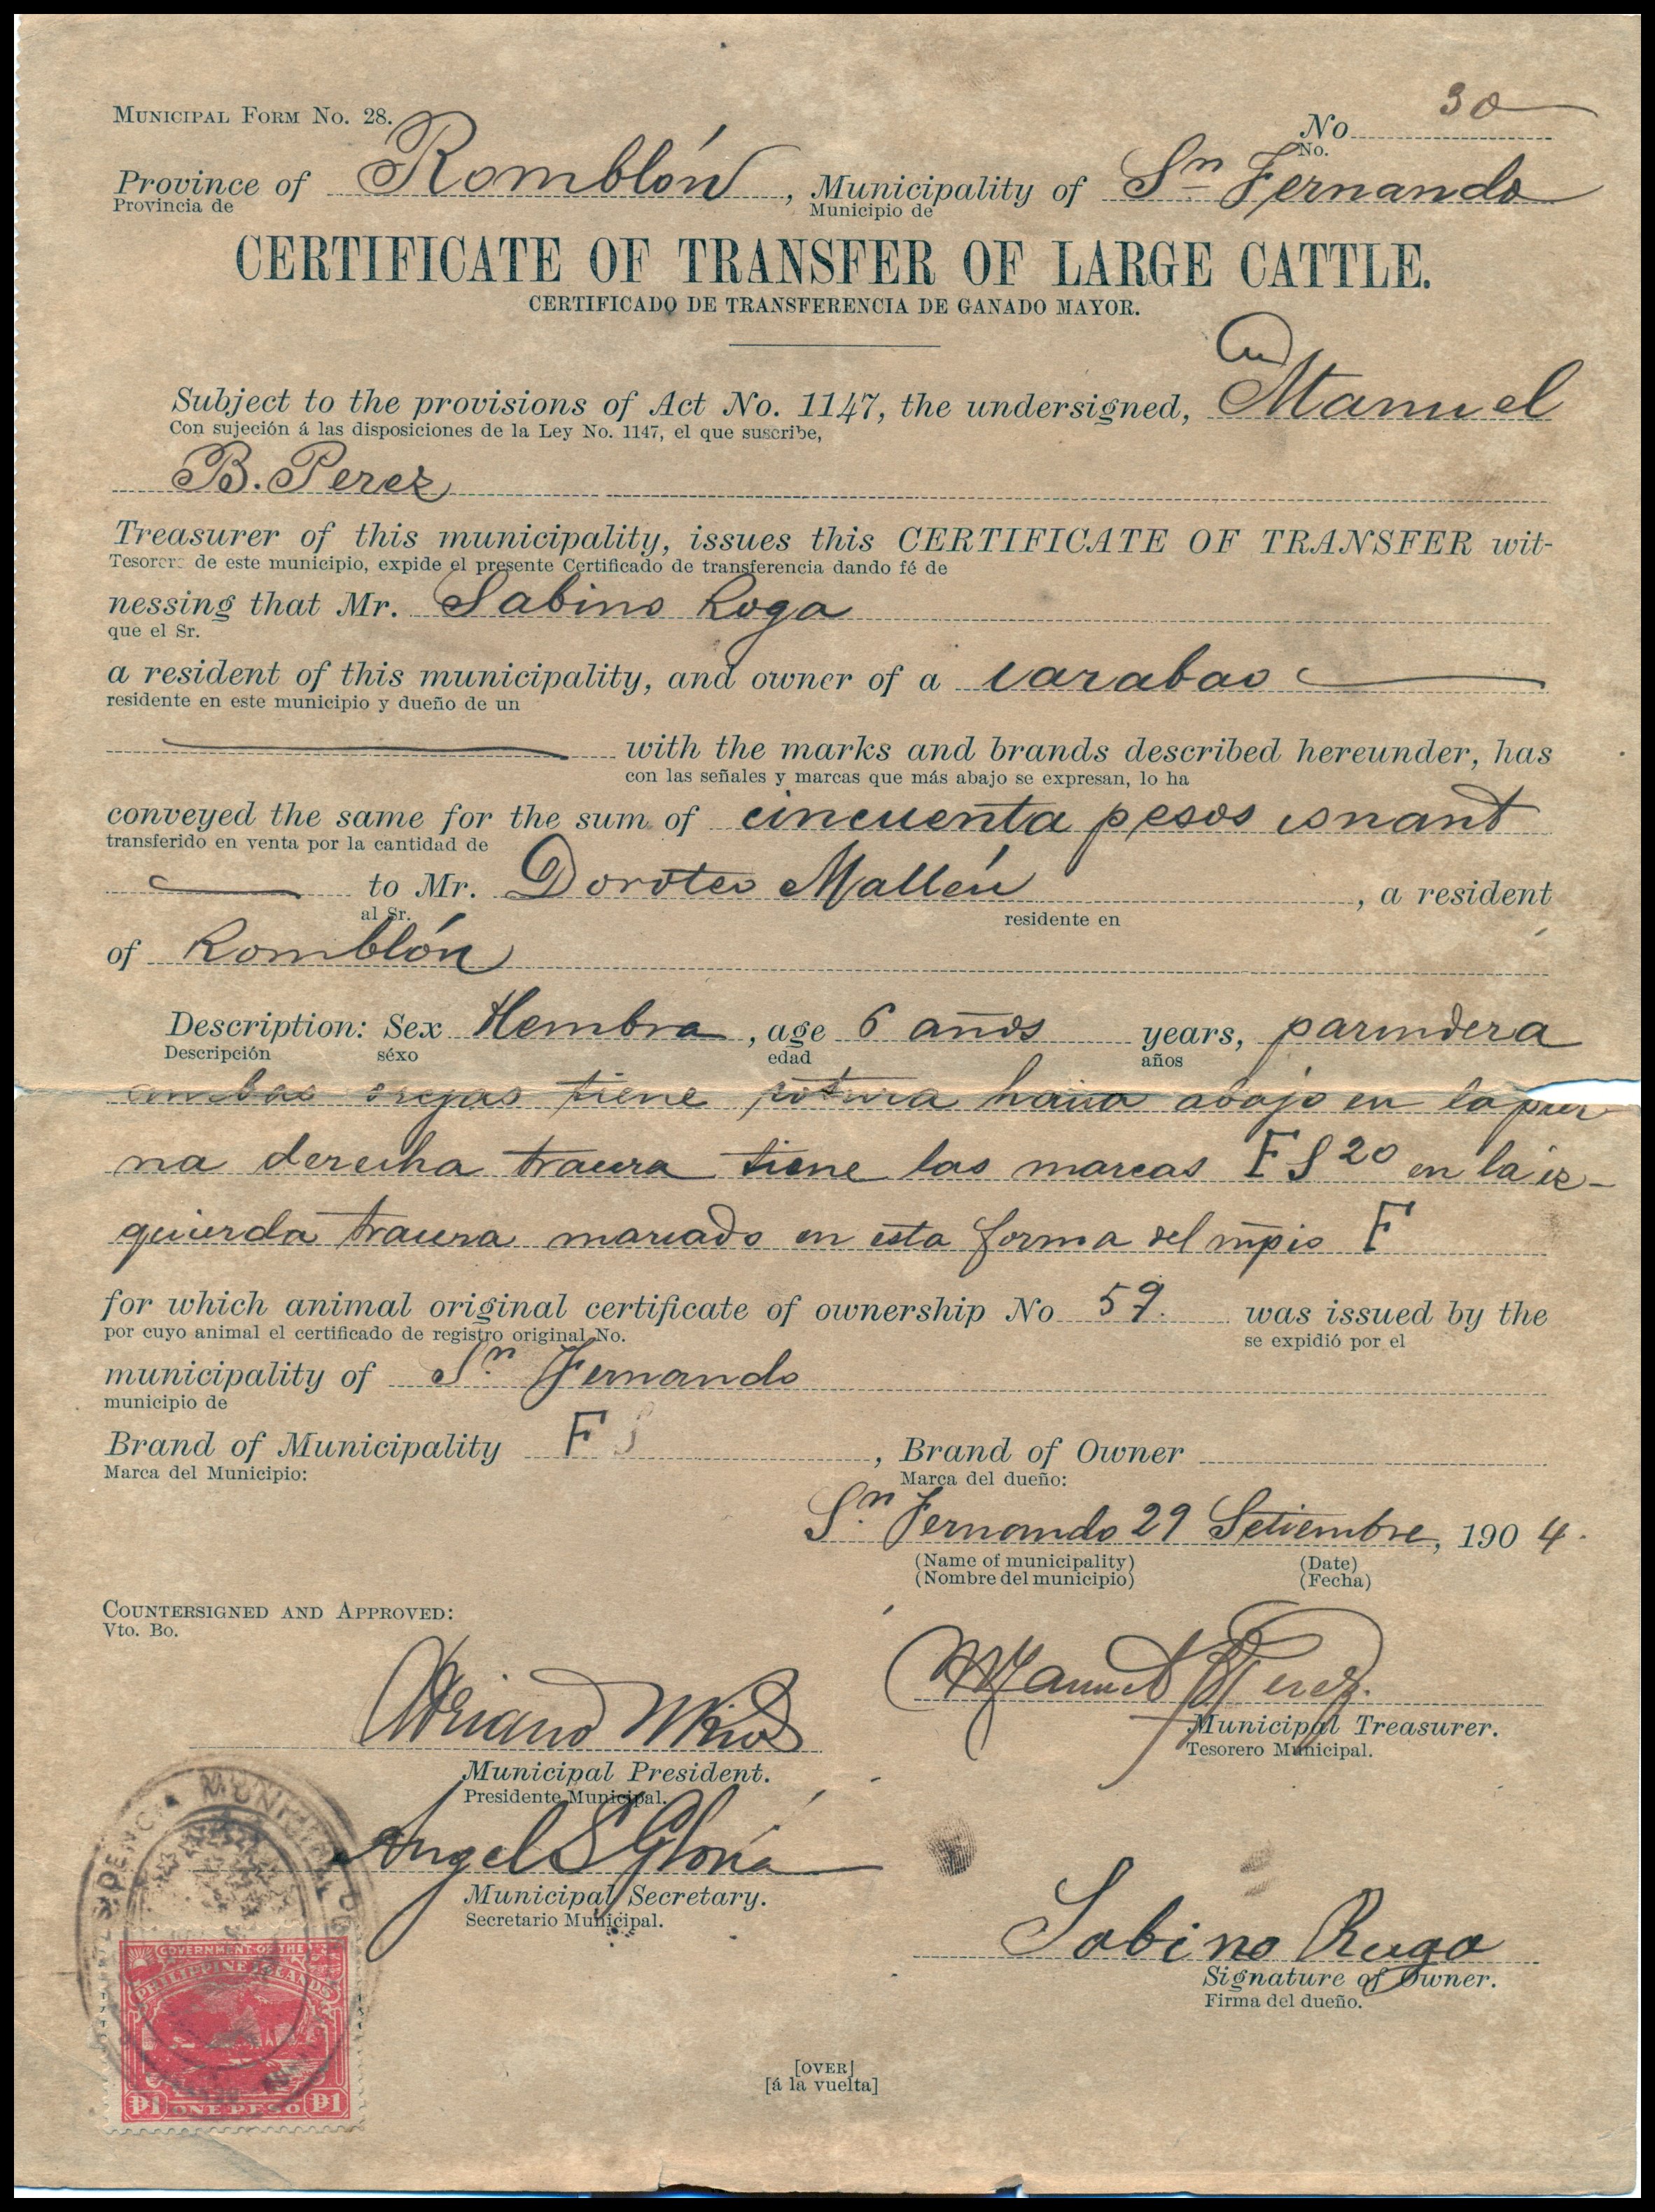 MUNICIPAL FORM No. 28.
No 30
No.
Province of Romblón, Municipality of Sn Fernando
Provincia de Municipio de
CERTIFICATE OF TRANSFER OF LARGE CATTLE.
CERTIFICADO DE TRANSFERENCIA DE GANADO MAYOR.
Subject to the provisions of Act No. 1147, the undersigned, Manuel
Con sujeción á las disposiciones de la Ley No. 1147, el que suscribe,
B. Perez
Treasurer of this municipality, issues this CERTIFICATE OF TRANSFER wit-
Tesorero de este municipio, expide el presente Certificado de transferencia dando fé de
nessing that Mr. Sabino Roga
que el Sr.
a resident of this municipality, and owner of a carabao
residente en este municipio y dueño de un
with the marks and brands described hereunder, has
con las señales y marcas que más abajo se expresan, lo ha
conveyed the same for the sum of cincuenta pesos
transferido en venta por la cantidad de
to Mr. Doroteo Mallén, a resident
al Sr. residente en
of Romblón
Description: Sex Hembra, age 6 años years, parindera
Descripción séxo edad años
ambas orejas tiene abajo en la pier
na derecha tracera tiene las marcas F S 20 en la iz-
quierda tracera marcado en esta forma del mpio F
for which animal original certificate of ownership No 59. was issued by the
por cuyo animal el certificado de registro original No. se expidió por el
municipality of Sn. Fernando
municipio de
Brand of Municipality F S, Brand of Owner
Marca del Municipio: Marca del dueño:
Sn. Fernando 29 Setiembre, 1904.
(Name of municipality) (Date)
(Nombre del municipio) (Fecha)
COUNTERSIGNED AND APPROVED:
Vto. Bo.
Manuel B Perez
Municipal Treasurer.
Tesorero Municipal.
Adriano
Municipal President.
Presidente Municipal.
Angel S Gloria
Municipal Secretary.
Secretario Municipal.
Sabino Ruga
Signature of Owner.
Firma del dueño.
PRESIDENCIA MUNICIPAL
GOVERNMENT OF THE
PHILIPPINE ISLANDS
₱1 ONE PESO ₱1
[OVER]
[á la vuelta]